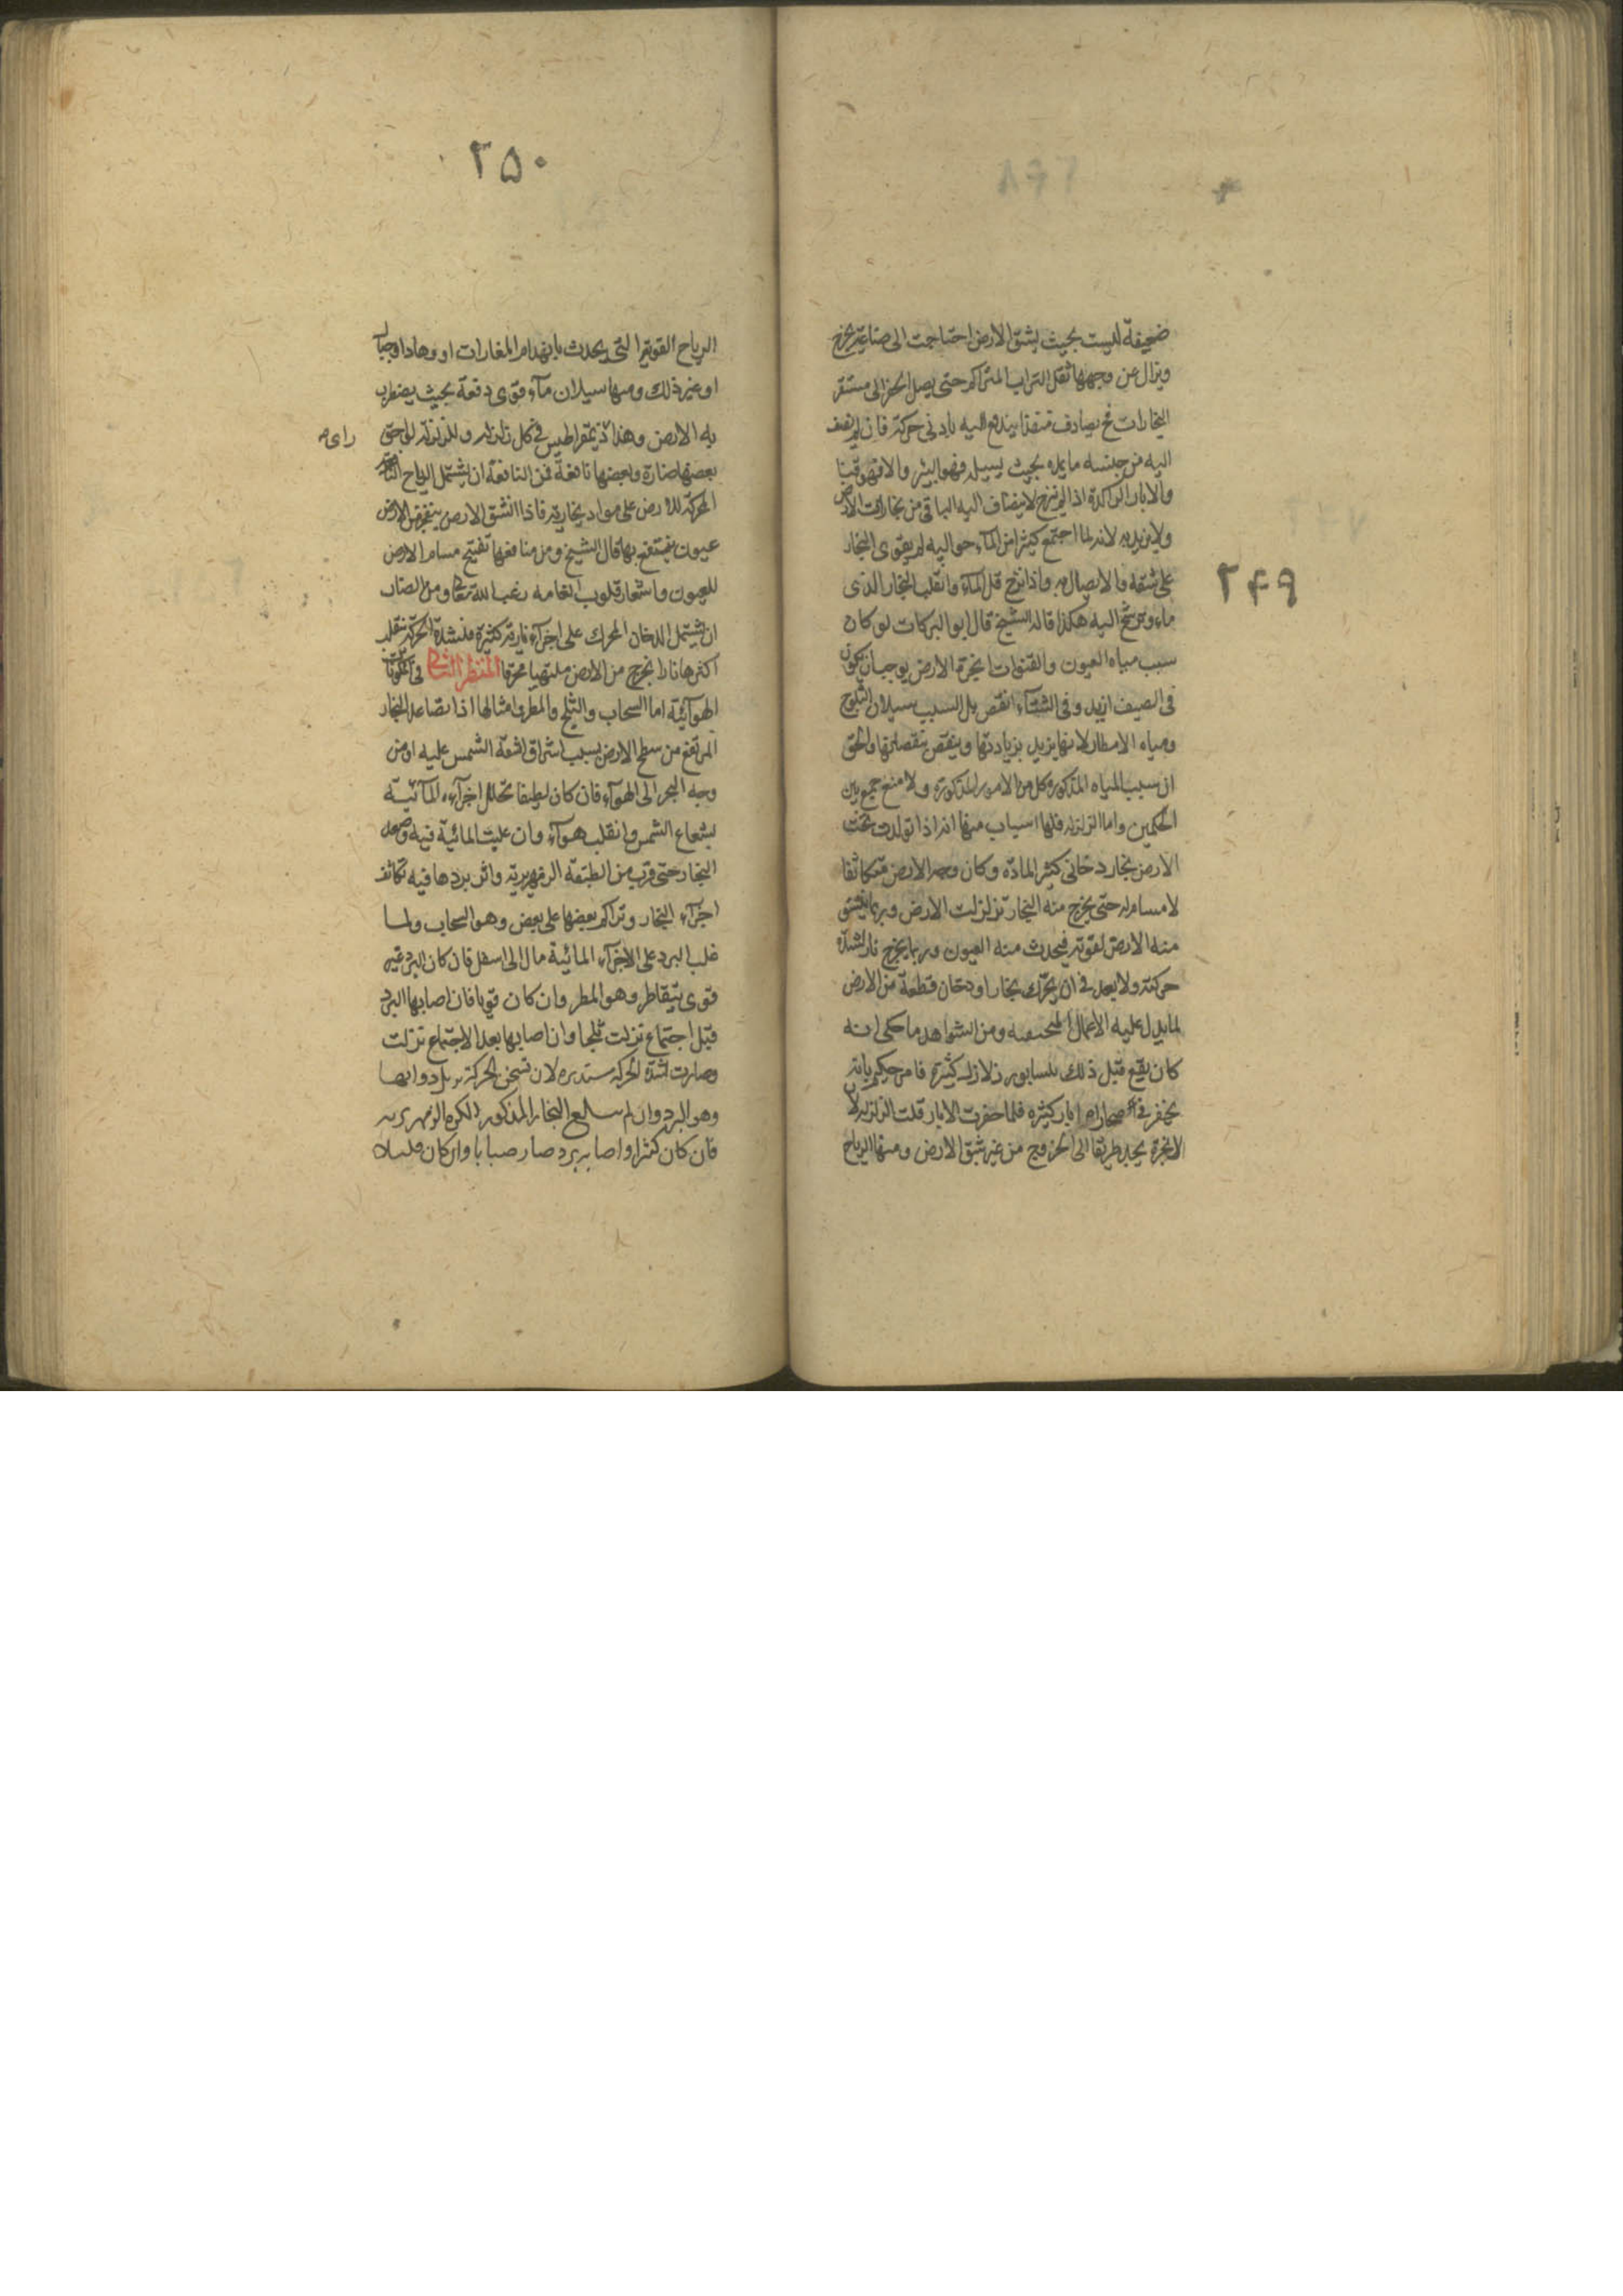 ضعيفة ليست بحيث يشق الارض احتاجت الى صناعة يخرج
ويزال عن وجهها ثقل التراب المتراكم حتى يصل الحفر الى مستقر
البخارات فح يصادف منفذا يندفع اليه بادنى حركة فان لم يضف
اليه من جنسه ما يمده بحيث يسيل فهو البئر والا فهو قنا
والابار الراكدة اذا لم ينزح لا ينضاف اليه الباقى من بخارات الارض
ولا يزيد لانه لما اجتمع كثير من المآء حواليه لم يقوى البخار
على شقه والاتصال به واذا نزح قل المآء وانقلب البخار الذى
ماء وترشح اليه هكذا قاله الشيخ قال ابو البركات لو كان
سبب مياه العيون والقنوات ابخرة الارض يوجب ان يكون
فى الصيف ازيد وفى الشتآء انقص بل السبب سيلان الثلوج
ومياه الامطار لانها يزيد بزيادتها وينقص بنقصانها والحق
ان سبب المياه المذكورة كل من الامور المذكورة ولا منع جمع بين
الحكمين واما الزلزله فلها اسباب منها انه اذا تولدت تحت
الارض بخار دخانى كثير المادّة وكان وجه الارض متكاثفا
لا مسام له حتى يخرج منه البخار تزلزلت الارض وربما ينشق
منه الارض لقوته فيحدث منه العيون وربما يخرج نار لشدّة
حركته ولا بعد فى ان يحرّك بخار او دخان قطعة من الارض
لما يدل عليه الاعمال ومن الشواهد ما حكى انه
كان يقع قبل ذلك بنسابور زلازل كثيرة فامر حكيم بانه
يحفر فى صحاراها ابار كثيره فلما حفرت الابار قلت الزلزله لان
الابخرة يجد طريقا الى الخروج من غير شق الارض ومنها الرياح
٢۴٩
٢۵٠
الرياح القوية التى يحدث بانهدام المغارات او وهاد او جبال
او غير ذلك ومنها سيلان مآء قوى دفعة بحيث يضطرب
به الارض وهذا ذيمقراطيس فى كل زلزله وللزلزلة لواحق
راى م
بعضها ضارة وبعضها نافعة فمن النافعة ان يشتمل الرياح
المحركة للارض على مواد بخارية فاذا انشق الارض ينفجر من الارض
عيون ينتفع بها قال الشيخ ومن منافعها تفتيح مسام الارض
للعيون واشعار قلوب العامه رعب الله تعالى ومن الضار
ان يشتمل الدخان المحرك على اجزآء نارية كثيرة فلشدة الحركة ينقلب
اكثرها نارا يخرج من الارض ملتهبا محرقا المنظر الثانى فى المكونات
الهوآئية اما السحاب والثلج والمطر وامثالها اذا تصاعد البخار
المرتفع من سطح الارض بسبب اشراق اشعة الشمس عليه او من
وجه البحر الى الهوآء فان كان لطيفا تحلل اجزآءه المآئية
بشعاع الشمس وانقلب هوآء وان غلبت المائية فيه وصعد
البخار حتى قرب من الطبقة الزمهريرية واثر بردها فيه تكاثف
اجزآء البخار وتراكم بعضها على بعض وهو السحاب ولما
غلب البرد على الاجزآء المائية مال الى اسفل فان كان البرد غير
قوى يتقاطر وهو المطر وان كان قويا فان اصابها البرد
قبل اجتماع نزلت ثلجا وان اصابها بعد الاجتماع نزلت
وصارت لشدّة الحركة مستديره لان تسخن الحركة زوايها
وهو البرد وان لم يبلغ البخار المذكور الكره الزمهريريه
فان كان كثيرا واصابه برد صار ضبابا وان كان قليلا